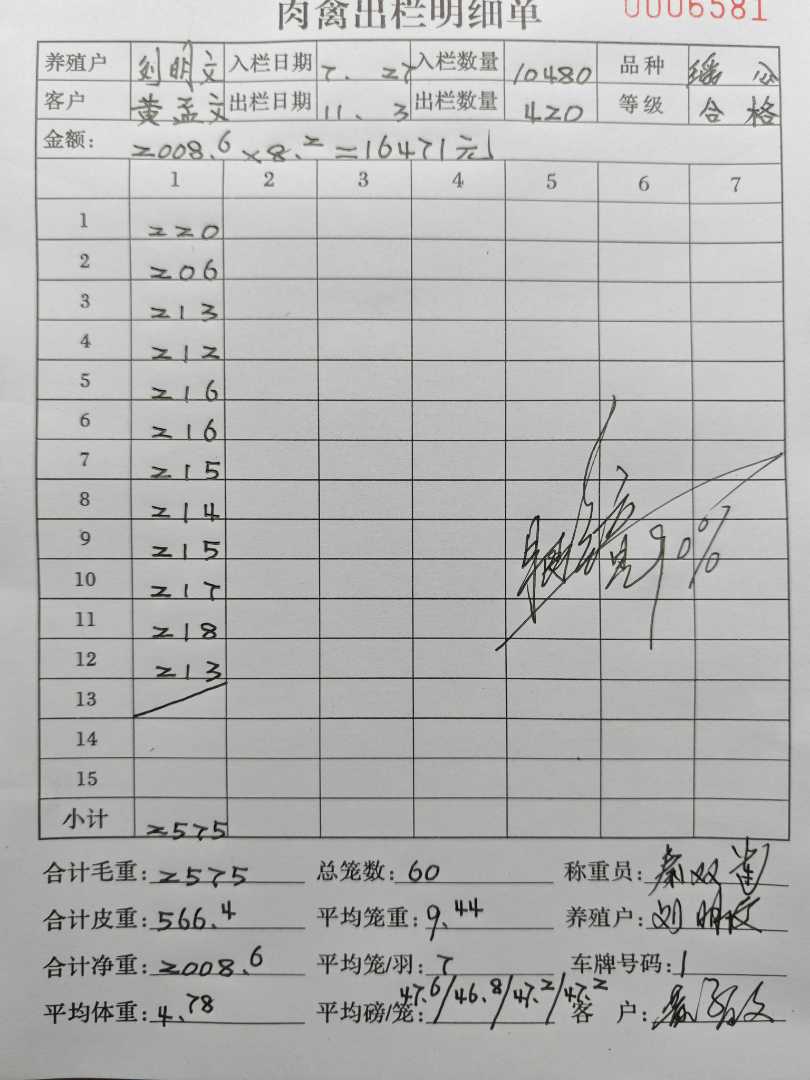 肉禽出栏明细单 0006581
养殖户 刘明文 入栏日期 7.27 入栏数量 10480 品种
客户 黄孟文 出栏日期 11.3 出栏数量 420 等级 合格
金额: 2008.6×8.2=16471元
1 2 3 4 5 6 7
1 220
2 206
3 213
4 212
5 216
6 216
7 215
8 214
9 215
10 217
11 218
12 213
13
14
15
90%
小计 2575
合计毛重: 2575 总笼数: 60 称重员: 秦双
合计皮重: 566.4 平均笼重: 9.44 养殖户: 刘明文
合计净重: 2008.6 平均笼/羽: 7 车牌号码:
平均体重: 4.78 平均磅/笼: 47.6/46.8/47.2/47.2 客 户: